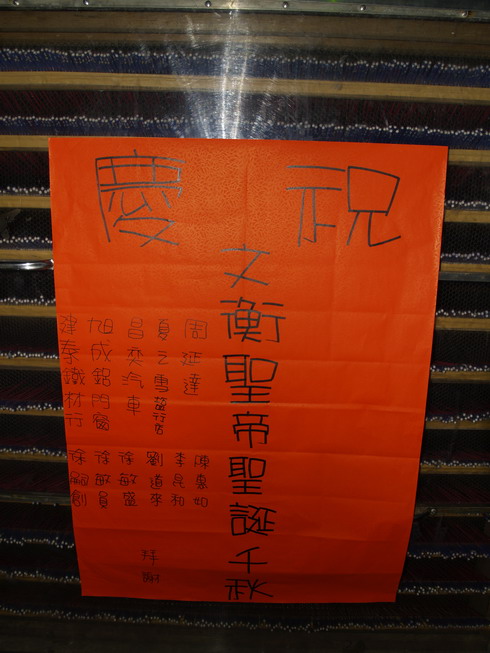 祝慶
文衡聖帝聖誕千秋
周延達
夏之雪旅行店
昌奕汽車
旭成鋁門窗
津泰鐵材行
陳惠如
李昆和
劉道來
徐敏盛
徐敏員
徐嗣創
拜謝